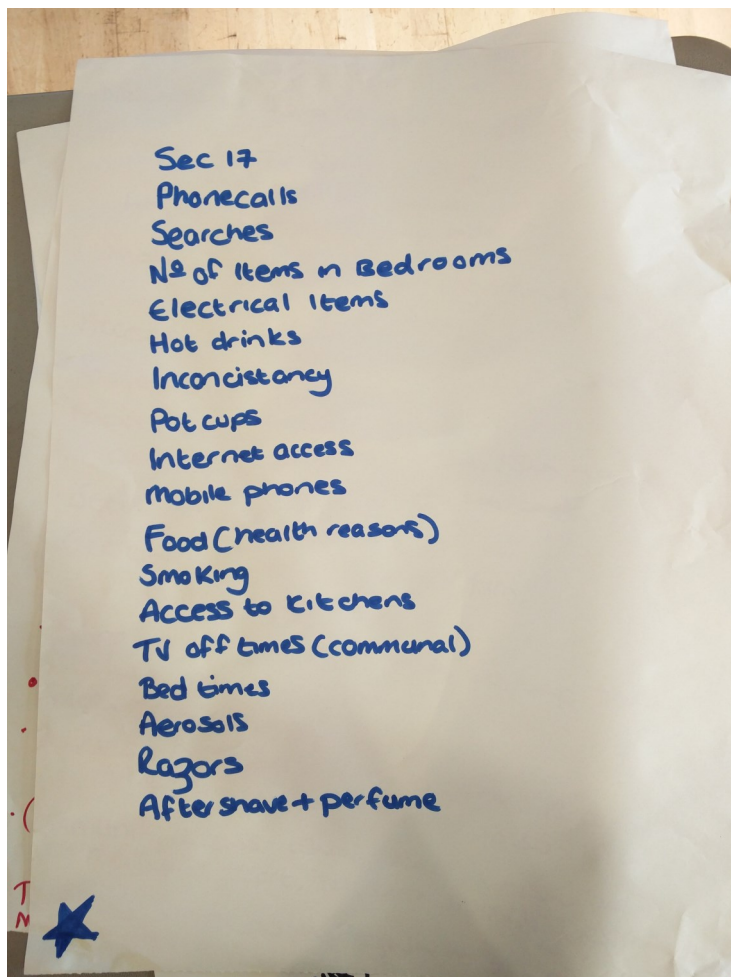 Sec 17
Phonecalls
Searches
Nº of Items in Bedrooms
Electrical Items
Hot drinks
Inconcistancy
Pot cups
Internet access
Mobile phones
Food (health reasons)
Smoking
Access to kitchens
TV off times (communal)
Bed times
Aerosols
Razors
Aftershave + perfume
T
N